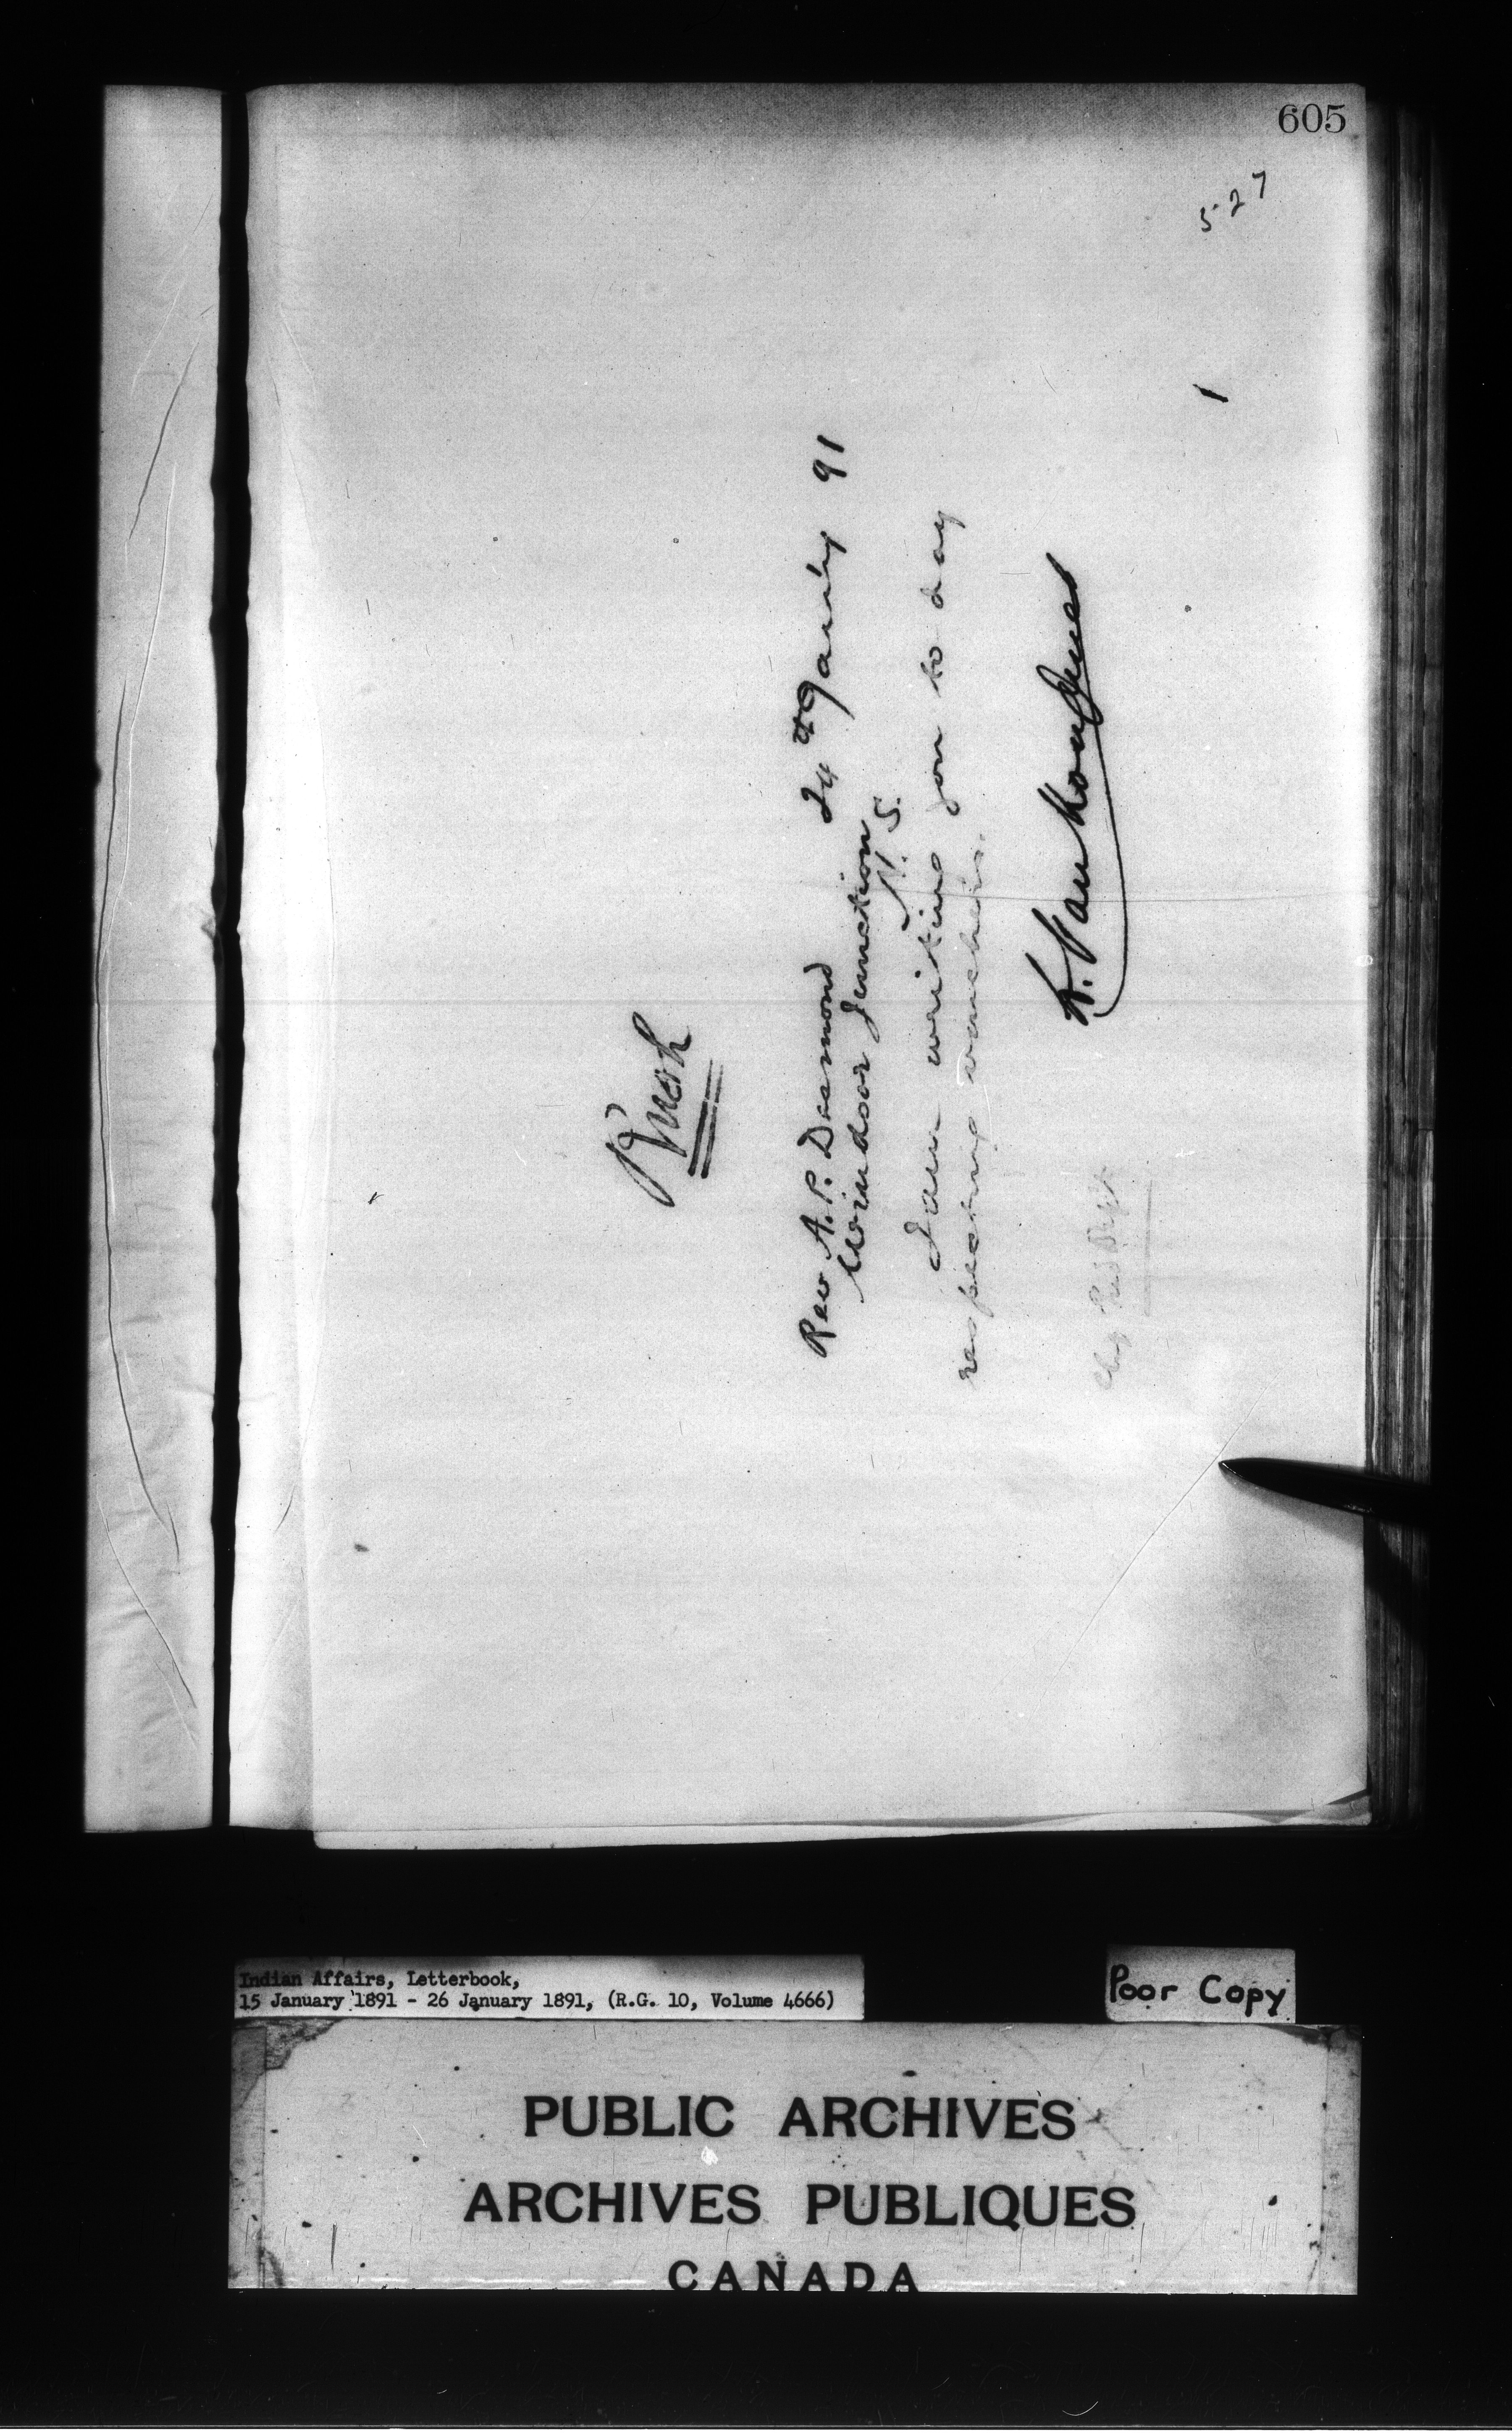 605
527
Rush
24th Jan'y 91
Rev A. P. Desmond
Windsor Junction
N. S.
I am writing you to day
respecting vouchers.
L. Vankoughnet
Chg Ind Dept
Indian Affairs, Letterbook,
15 January 1891 - 26 January 1891, (R.G. 10, Volume 4666)
Poor Copy
PUBLIC ARCHIVES
ARCHIVES PUBLIQUES
CANADA